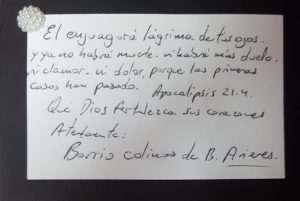 El enjugará lágrima de tus ojos.
y ya no habrá muerte. ni habrá más duelo.
ni clamor. ni dolor, porque las primeras
cosas han pasado. Apocalipsis 21.4.
Que Dios fortalezca sus corazones
Atentamente:
Barrio colinas de B. Aires.